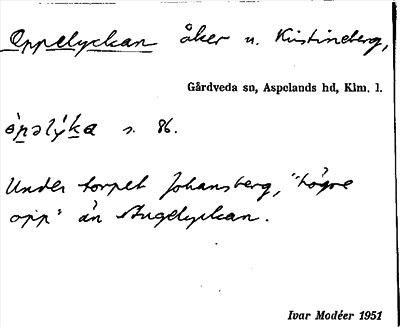 Oppelyckan åker u. Kristineberg,
Gårdveda sn, Aspelands hd, Klm. l.
s. 86.
Under torpet Johansberg, "högre
opp" än Stugelyckan.
Ivar Modéer 1951